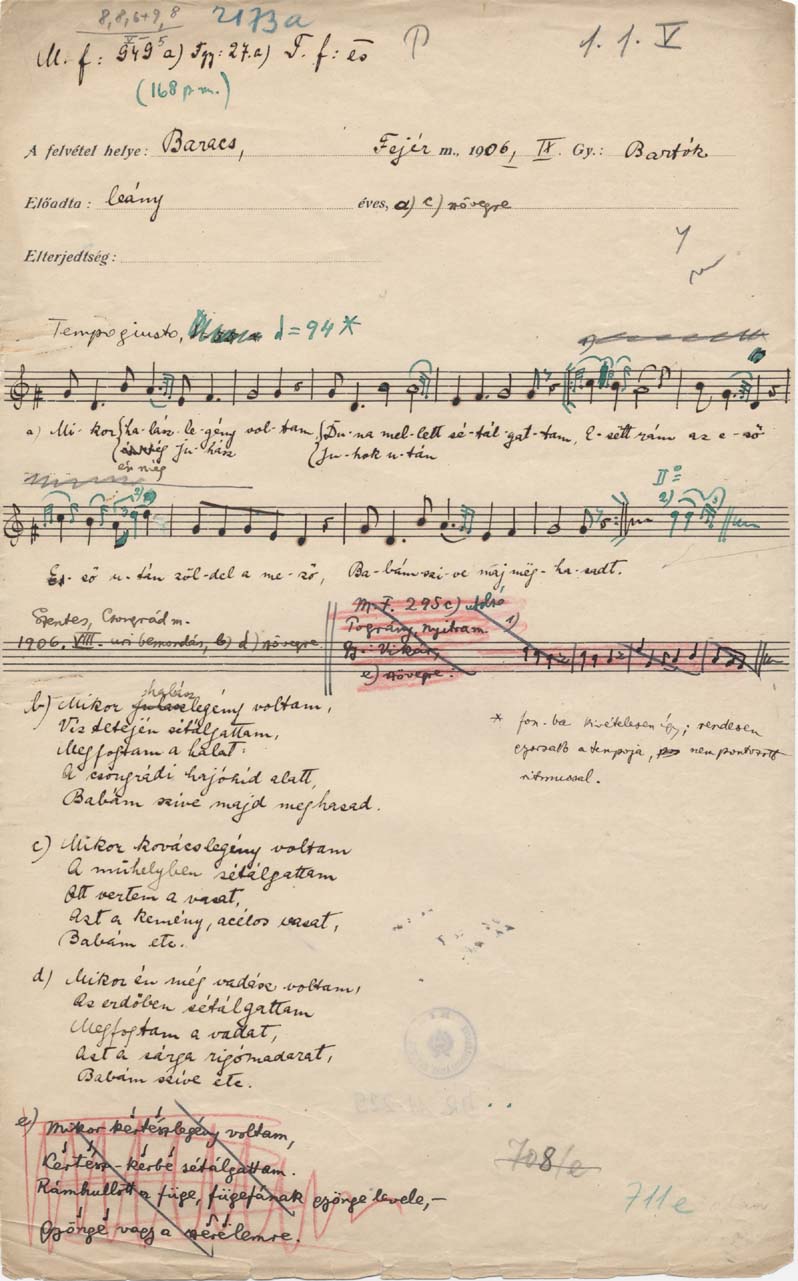 8, 8, 6+9, 8
2173a
M. f: 949 a) Fgy: 27.a) T. f: és
P
1. 1. V
(168 p.m.)
A felvétel helye: Baracs, Fejér m., 1906, IX. Gy.: Bartók
Előadta: leány éves, a) c) szövegre
Elterjedtség:
Tempo giusto, = 94 *
a) Mi-kor ha-lász-le-gény vol-tam, Du-na mel-lett sé-tál-gat-tam, E-sett rám az e-ső
én még ju-hász Ju-hok u-tán
II°
2)
Es-ső u-tán zöl-del a me-ző, Ba-bám szi-ve máj mëg-ha-sadt.
Szentes, Csongrád m.
1906. VIII. uri bemondás, b) d) szövegre
M. F. 295 c) utolsó
Tográny, Nyitra m.
Gy: Vikár
1)
e) szövegre.
b) Mikor halászlegény voltam,
Viz tetején sétálgattam,
Megfogtam a halat
A csongrádi hajóhid alatt,
Babám szive majd meghasad.
* fon.-ba kivételesen így; rendesen
gyorsabb a tempoja, nem pontozott
ritmussal.
c) Mikor kovácslegény voltam
A műhelyben sétálgattam
Ott vertem a vasat,
Azt a kemény, acélos vasat,
Babám etc.
d) Mikor én még vadász voltam,
Az erdőben sétálgattam
Megfogtam a vadat,
Azt a sárga rigómadarat,
Babám szive etc.
e) Mikor kértészlegény voltam,
Kértész-kérbé sétálgattam.
Rámhullott a füge, fügefának gyönge levele,–
Gyöngé vagy a
708/e
711e